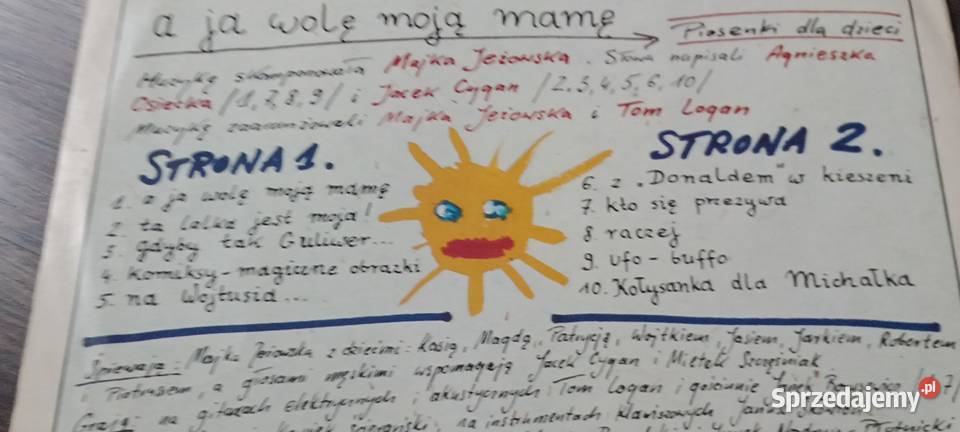 a ja wolę moją mamę
Piosenki dla dzieci
Muzykę skomponowała Majka Jeżowska. Słowa napisali Agnieszka
Osiecka /1,7,8,9/ i Jacek Cygan /2,3,4,5,6,10/
Muzykę zaaranżowali Majka Jeżowska i Tom Logan
STRONA 1.
1. a ja wolę moją mamę
2. ta lalka jest moja!
3. gdyby tak Guliwer...
4. komiksy-magiczne obrazki
5. na Wojtusia...
STRONA 2.
6. z "Donaldem" w kieszeni
7. kto się przezywa
8 raczej
9. ufo-buffo
10. Kołysanka dla Michałka
Śpiewają: Majka Jeżowska z dziećmi: Kasią, Magdą, Patrycją, Wojtkiem, Jasiem, Jarkiem, Robertem
i Piotrusiem, a głosami męskimi wspomagają Jacek Cygan i Mietek Szcześniak
Grają: na gitarach elektrycznych i akustycznych Tom Logan i gościnnie
na instrumentach klawiszowych
Sprzedajemy.pl